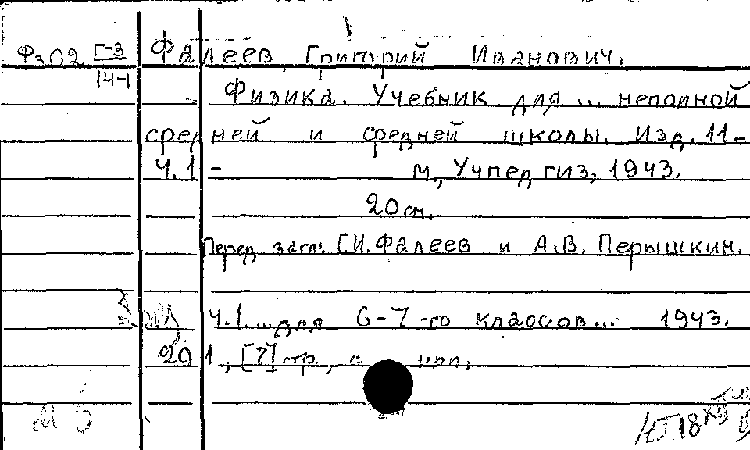 Фз02 Г-3/14-1 Фалеев, Григорий Иванович.
Физика. Учебник для ... неполной
средней и средней школы. Изд. 11-
Ч.1 - М., Учпедгиз, 1943.
20 см.
Перед загл: Г.И. Фалеев и А.В. Перышкин.
Ч.1. ...для 6-7-го классов... 1943.
201, [7] стр,